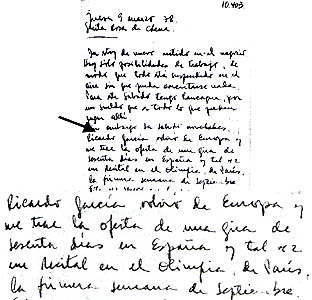 10.403
Jueves 9 marzo 78.
Santa Rosa de
Ya estoy de nuevo metido en el negocio
Hay sólo posibilidades de trabajo, de
modo que todo está suspendido en el
aire sin que pueda concretarse nada.
Para ste Sábado tengo Rancagua, por
un sueldo que es todo lo que
Sin embargo ha salido
Ricardo García volvió de Europa y
me trae la oferta de una gira de
sesenta días en España y tal vez
un Recital en el Olimpia, de París,
la primera semana de Septiembre
Ricardo García volvió de Europa y
me trae la oferta de una gira de
sesenta días en España y tal vez
un Recital en el Olimpia, de París,
la primera semana de Septiembre